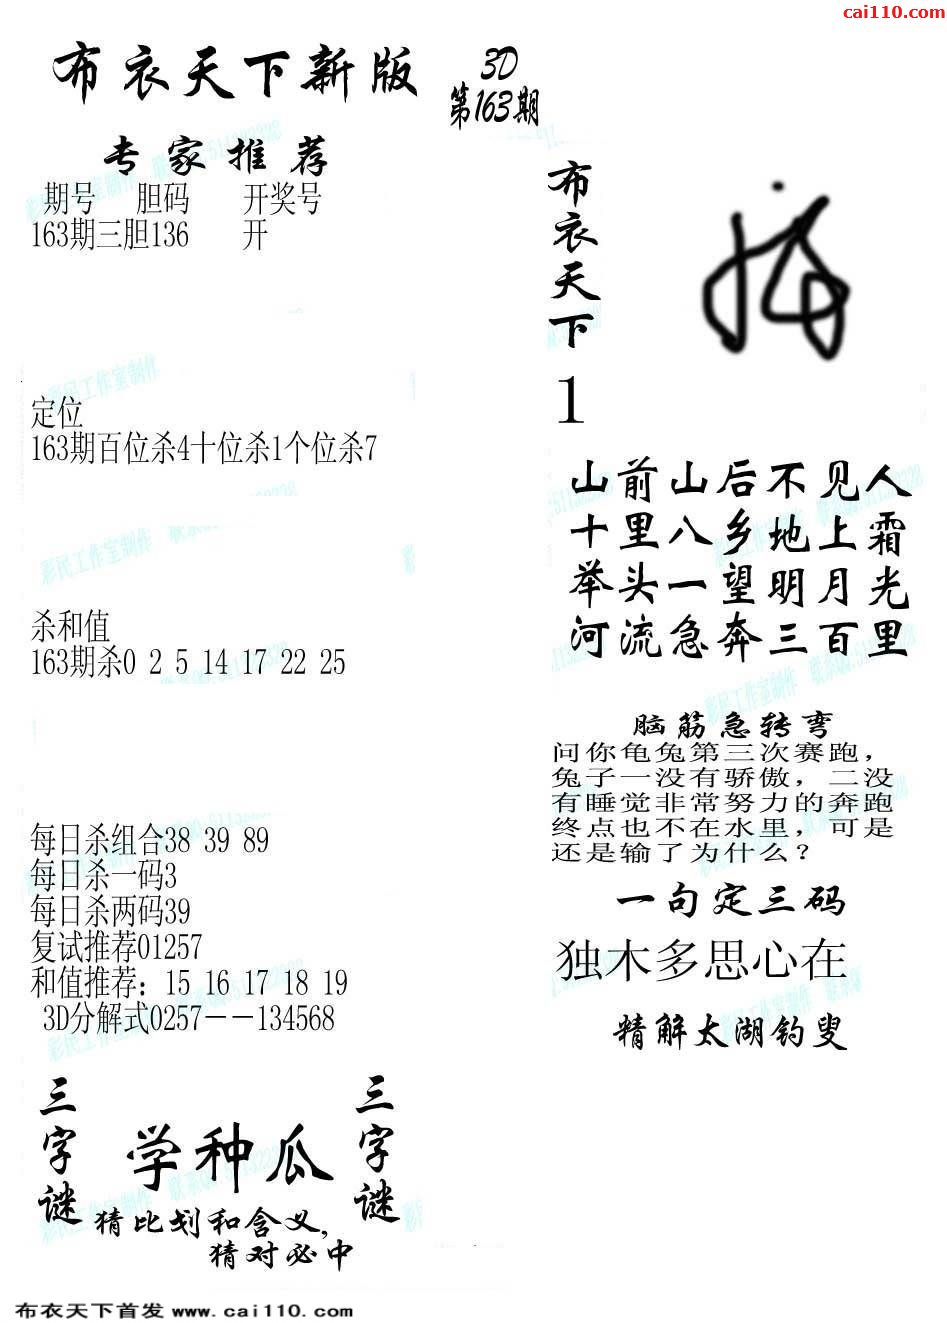 cai110.com
布衣天下新版
3D
第163期
专家推荐
期号 胆码 开奖号
163期三胆136 开
定位
163期百位杀4十位杀1个位杀7
杀和值
163期杀0 2 5 14 17 22 25
每日杀组合38 39 89
每日杀一码3
每日杀两码39
复试推荐01257
和值推荐：15 16 17 18 19
3D分解式0257－－134568
三字谜
学种瓜
三字谜
猜比划和含义，
猜对必中
布衣天下
1
山前山后不见人
十里八乡地上霜
举头一望明月光
河流急奔三百里
脑筋急转弯
问你龟兔第三次赛跑，
兔子一没有骄傲，二没
有睡觉非常努力的奔跑
终点也不在水里，可是
还是输了为什么？
一句定三码
独木多思心在
精解太湖钓叟
布衣天下首发 www.cai110.com